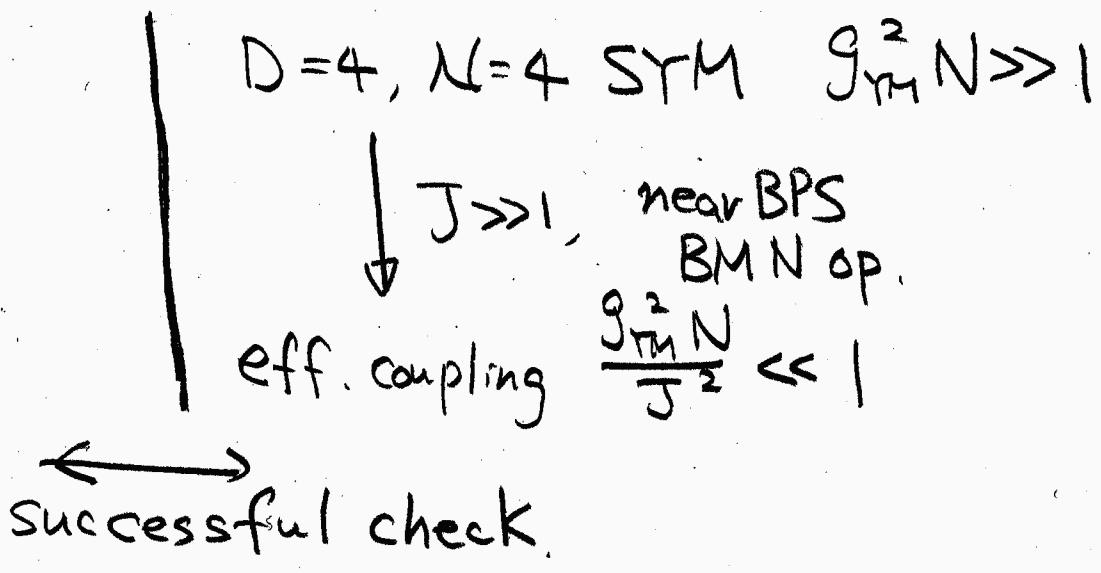 D=4, N=4 SYM g²_YM N >> 1
J>>1, near BPS
BMN op.
eff. coupling g²_YM N / J² << 1
successful check.